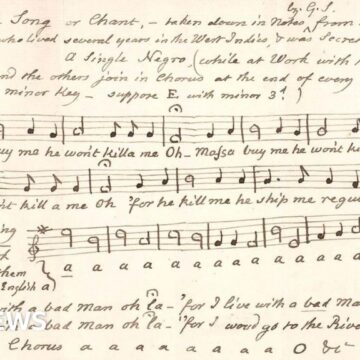 by G. S.
Song or Chant, – taken down in Notes, from
who lived several years in the West Indies, & was Secre
A Single Negro (while at Work with
nd the others join in Chorus at the end of every
minor Key – suppose E with minor 3d)
uy me he won't killa me Oh – Massa buy me he won't k
't kill a me Oh 'for he kill me he ship me regu
ing
hem
English a)
a a a a a a a a a
with a bad man oh la – 'for I live with a bad Ma
bad man oh la – 'for I wou'd go to the Riv
Chorus a a a a a a O &c
NEWS